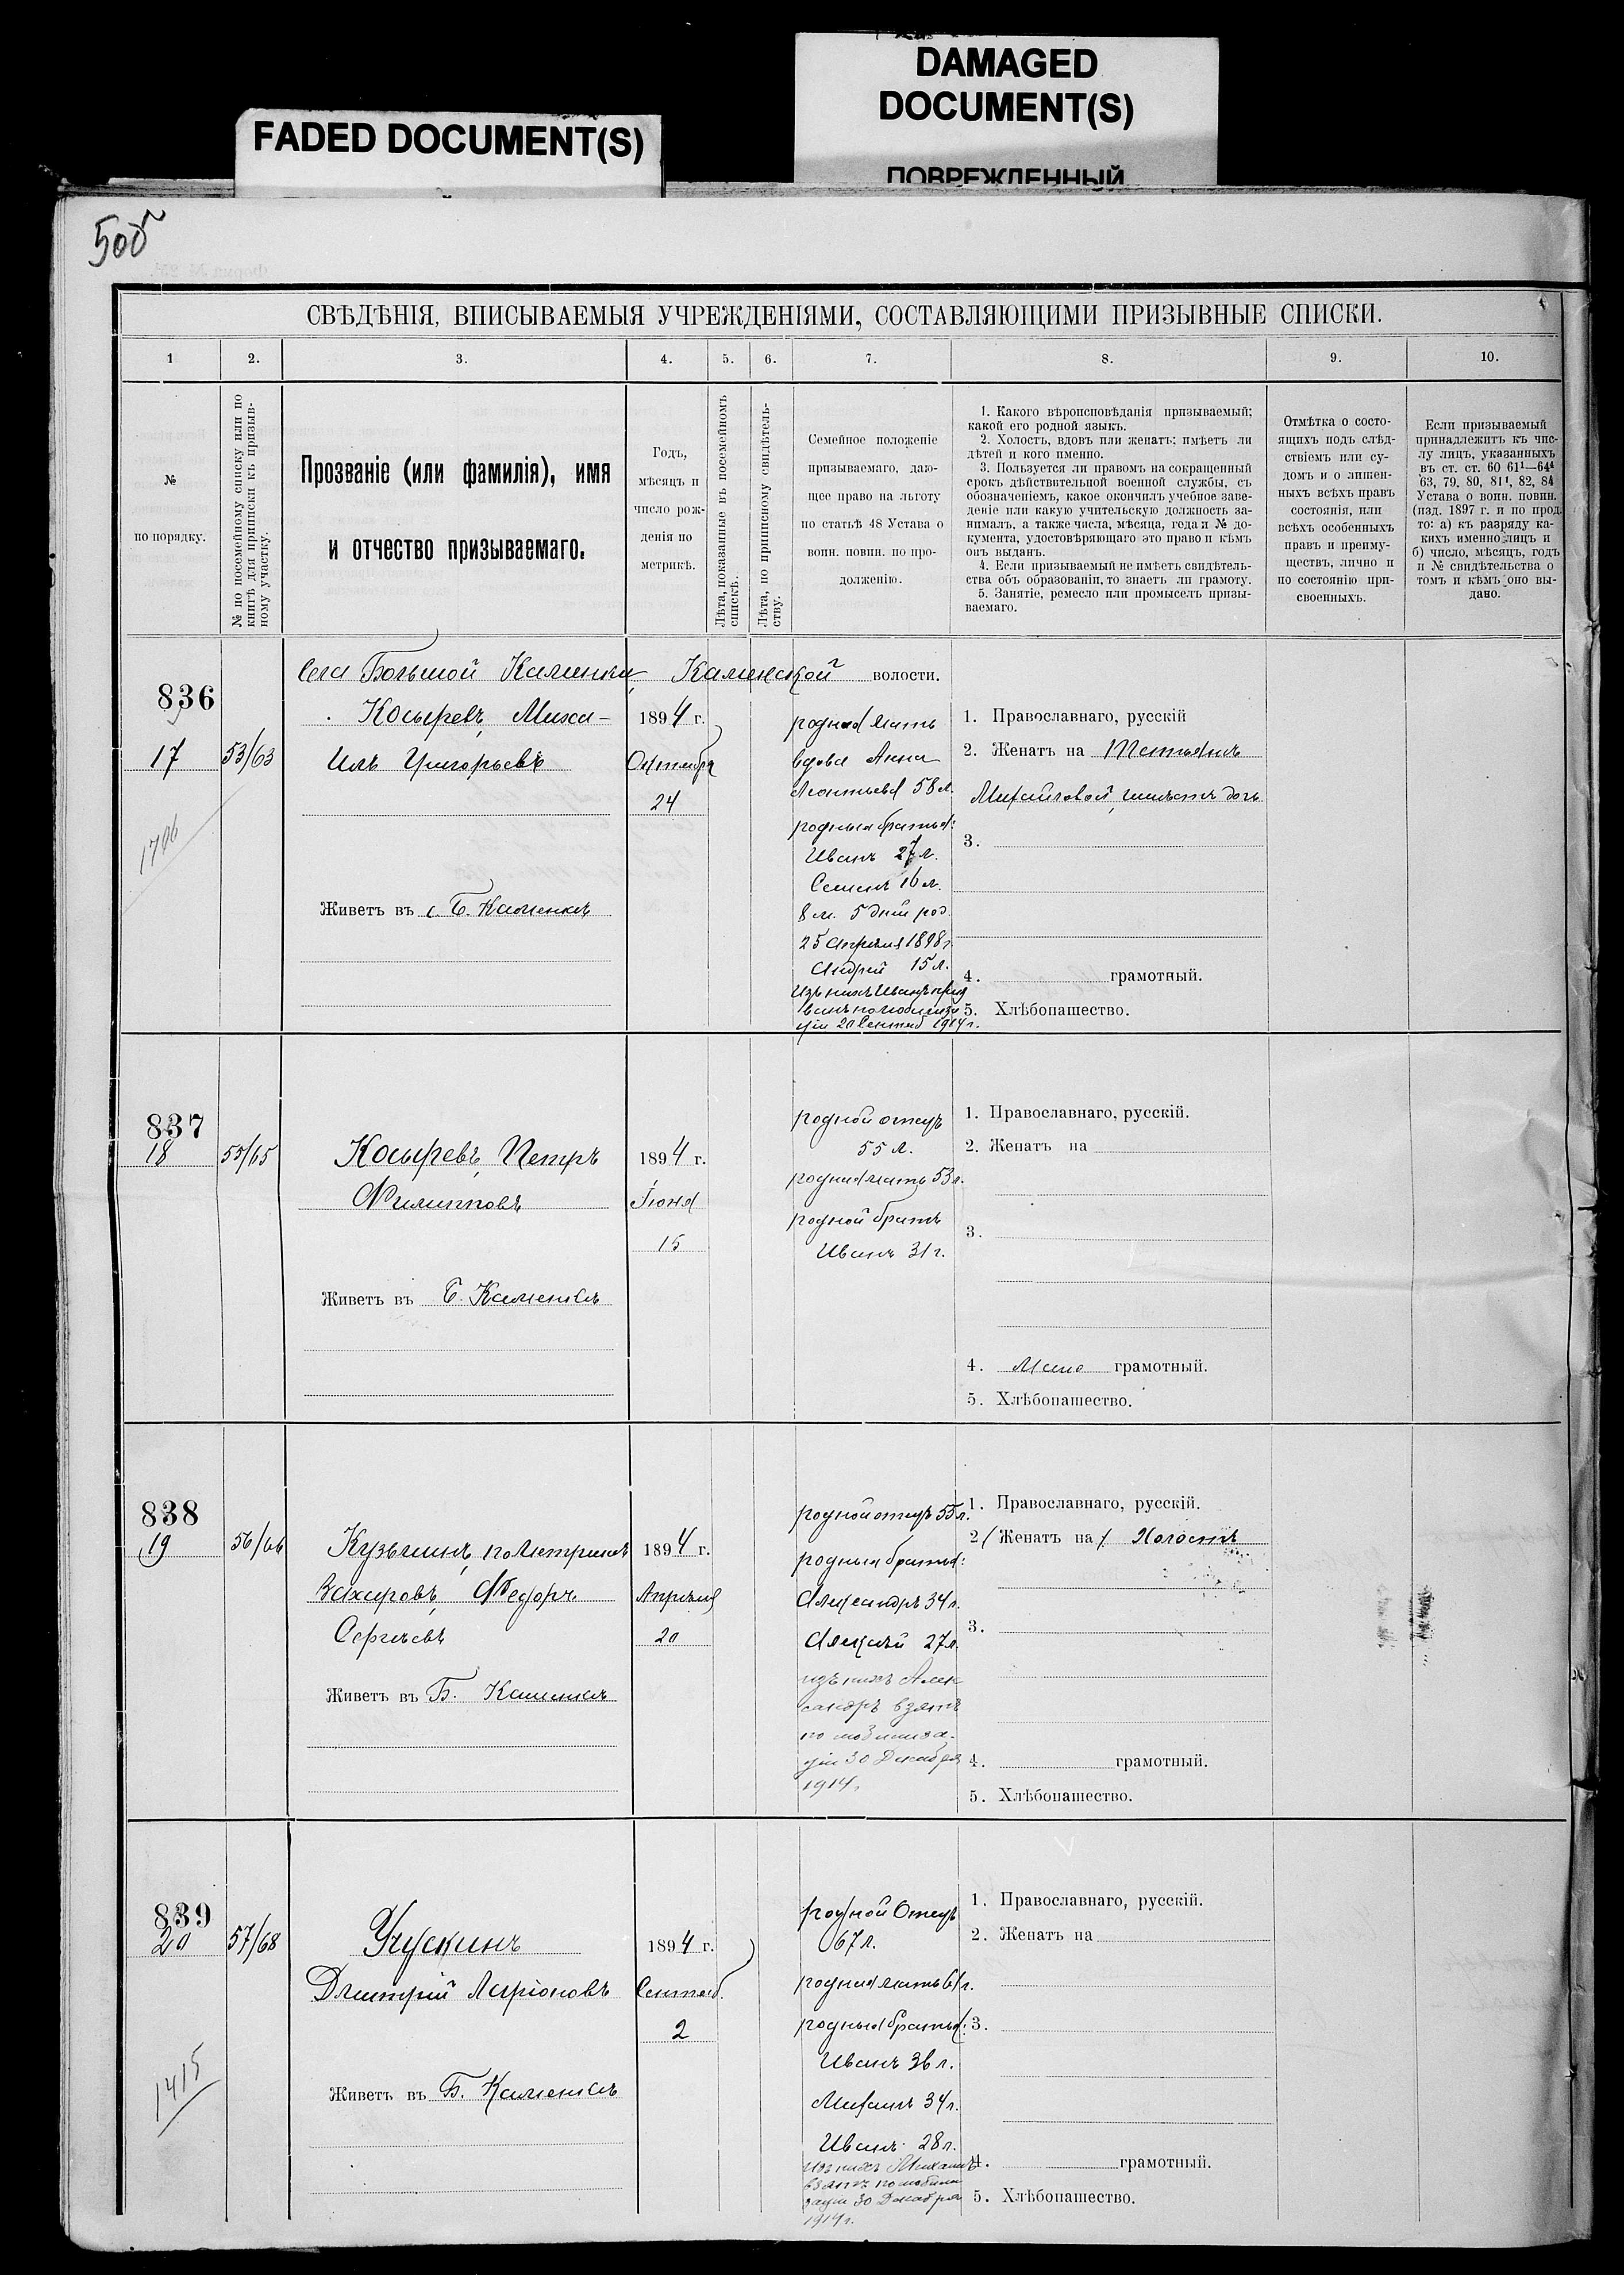 FADED DOCUMENT(S)
DAMAGED
DOCUMENT(S)
ПОВРЕЖДЕННЫЙ
500
СВѢДѢНІЯ, ВПИСЫВАЕМЫЯ УЧРЕЖДЕНІЯМИ, СОСТАВЛЯЮЩИМИ ПРИЗЫВНЫЕ СПИСКИ.
1 2. 3. 4. 5. 6. 7. 8. 9. 10.
№
по порядку.
№ по посемейному списку или по
книгѣ для приписки къ призыв-
ному участку.
Прозваніе (или фамилія), имя
и отчество призываемаго.
Годъ,
мѣсяцъ и
число рож-
денія по
метрикѣ.
Лѣта, показанные въ посемейномъ
спискѣ.
Лѣта, по приписному свидѣтель-
ству.
Семейное положеніе
призываемаго, даю-
щее право на льготу
по статьѣ 48 Устава о
воин. повин. по про-
долженію.
1. Какого вѣроисповѣданія призываемый;
какой его родной языкъ.
2. Холостъ, вдовъ или женатъ; имѣетъ ли
дѣтей и кого именно.
3. Пользуется ли правомъ на сокращенный
срокъ дѣйствительной военной службы, съ
обозначеніемъ, какое окончилъ учебное заве-
деніе или какую учительскую должность за-
нималъ, а также числа, мѣсяца, года и № до-
кумента, удостовѣряющаго это право и кѣмъ
онъ выданъ.
4. Если призываемый не имѣетъ свидѣтель-
ства объ образованіи, то знаетъ ли грамоту.
5. Занятіе, ремесло или промыселъ призы-
ваемаго.
Отмѣтка о состо-
ящихъ подъ слѣд-
ствіемъ или су-
домъ и о лишен-
ныхъ всѣхъ правъ
состоянія, или
всѣхъ особенныхъ
правъ и преиму-
ществъ, лично и
по состоянію при-
своенныхъ.
Если призываемый
принадлежитъ къ чис-
лу лицъ, указанныхъ
въ ст. ст. 60 61¹—64⁴
63, 79, 80, 81¹, 82, 84
Устава о воин. повин.
(изд. 1897 г. и по прод.
то: а) къ разряду ка-
кихъ именно лицъ и
б) число, мѣсяцъ, годъ
и № свидѣтельства о
томъ и кѣмъ оно вы-
дано.
Села Большой Каменки, Каменской волости.
836
17 53/63
1706
Косыревъ, Миха-
илъ Григорьевъ
Живетъ въ с. Б. Каменкѣ
1894 г.
Октября
24
родная мать
вдова Анна
Леонтьева 58 л.
родные братья:
Иванъ 27 л.
Семенъ 16 л.
8 м. 5 дней род.
25 Апрѣля 1898 г.
Андрей 15 л.
Изъ нихъ Иванъ приз
ванъ по мобилиза
ціи 20 Сентяб 1914 г.
1. Православнаго, русскій
2. Женатъ на Татьянѣ
Михайловой, имѣетъ дочь
3.
4. грамотный.
5. Хлѣбопашество.
837
18 55/65
Косыревъ, Петръ
Филипповъ
Живетъ въ Б. Каменкѣ
1894 г.
Іюня
15
родной отецъ
55 л.
родная мать 53 л.
родной братъ
Иванъ 31 г.
1. Православнаго, русскій.
2. Женатъ на
3.
4. Мало грамотный.
5. Хлѣбопашество.
838
19 56/66
Кузьминъ, по метрикѣ
Захаровъ, Федоръ
Сергѣевъ
Живетъ въ Б. Каменкѣ
1894 г.
Апрѣля
20
родной отецъ 55 л.
родные братья:
Александръ 34 л.
Алексѣй 27 л.
изъ нихъ Алек
сандръ взятъ
по мобилиза-
ціи 30 Декабря
1914 г.
1. Православнаго, русскій.
2. (Женатъ на) Холостъ
3.
4. грамотный.
5. Хлѣбопашество.
839
20 57/68
1415
Дмитрій Ларіоновъ
Живетъ въ Б. Каменкѣ
1894 г.
Сентяб.
2
родной Отецъ
67 л.
родная мать 61 г.
родные братья:
Иванъ 36 л.
Михаилъ 34 г.
Иванъ 28 л.
Изъ нихъ Михаилъ
взятъ по мобили
заціи 30 Декабря
1914 г.
1. Православнаго, русскій.
2. Женатъ на
3.
4. грамотный.
5. Хлѣбопашество.